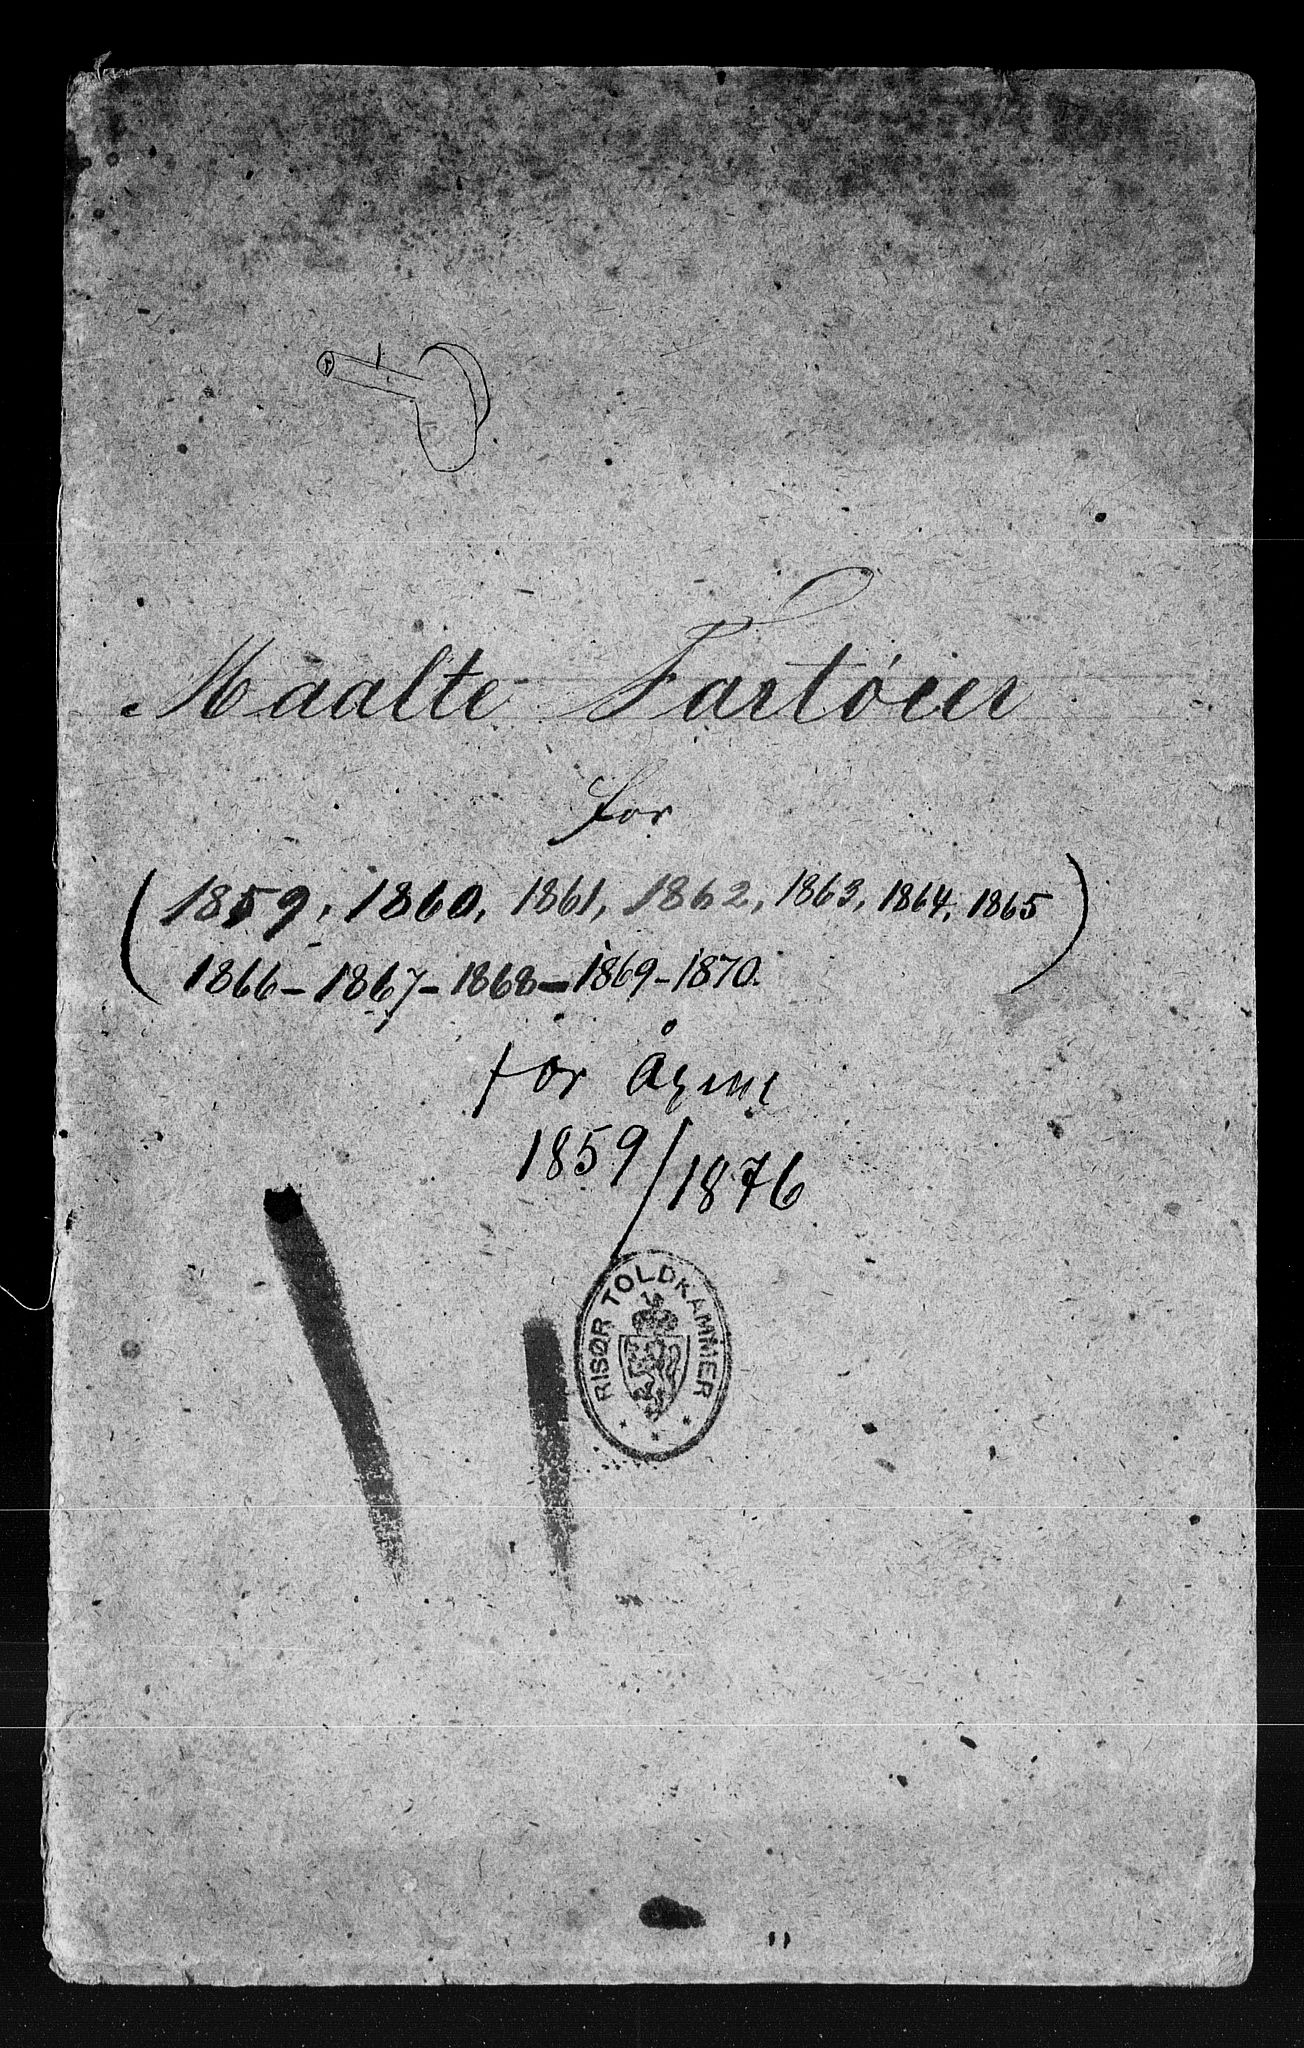 Maalte Fartøier
for
(1859, 1860, 1861, 1862, 1863, 1864, 1865
1866 - 1867 - 1868 - 1869 - 1870.)
for Årene
1859/1876
RISØR TOLDKAMMER